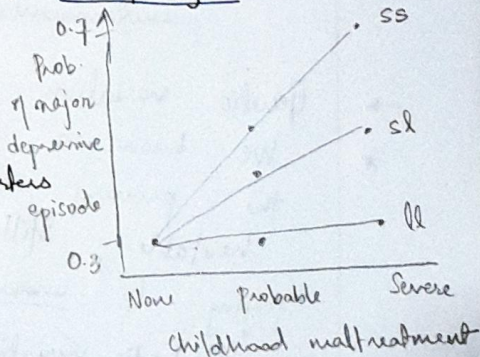 0.7
Prob.
of major
depressive
episode
0.3
ss
sl
ll
None Probable Severe
Childhood maltreatment